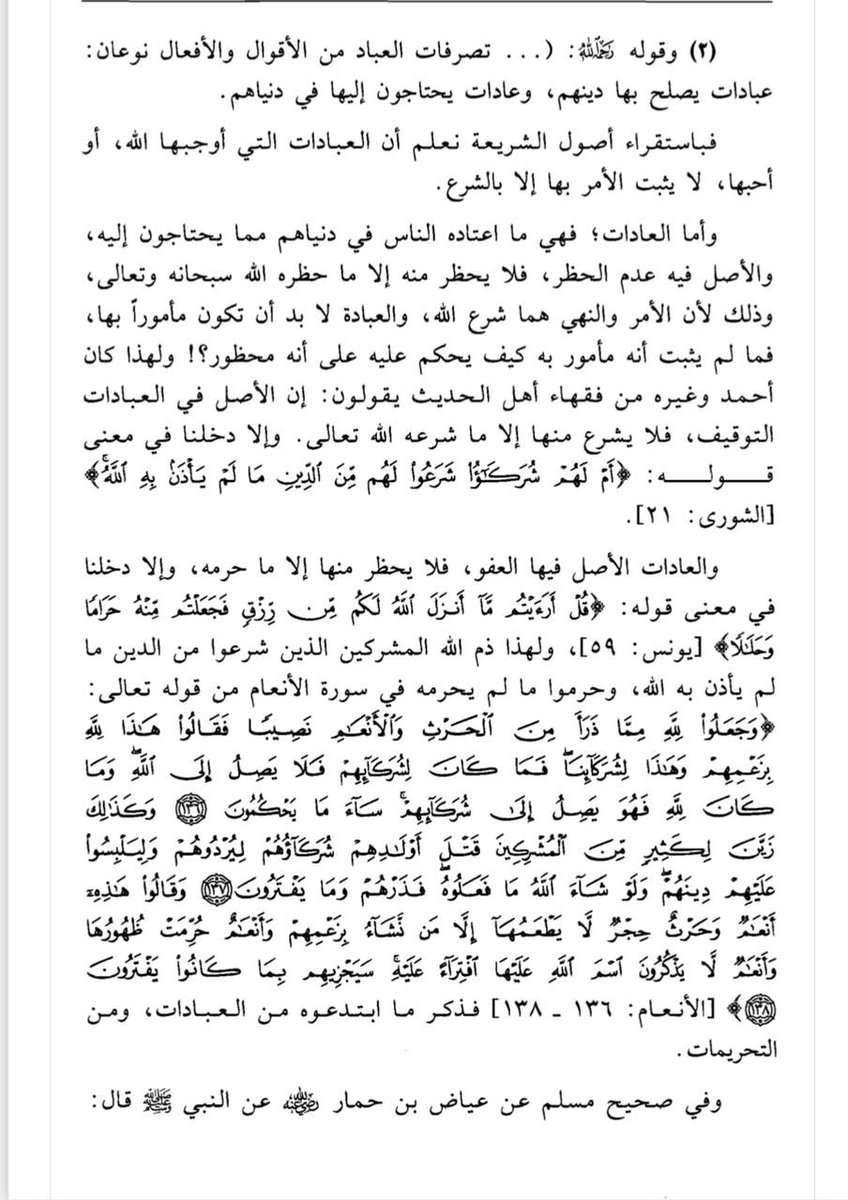 (٢) وقوله رحمه الله: (... تصرفات العباد من الأقوال والأفعال نوعان:
عبادات يصلح بها دينهم، وعادات يحتاجون إليها في دنياهم.
فباستقراء أصول الشريعة نعلم أن العبادات التي أوجبها الله، أو
أحبها، لا يثبت الأمر بها إلا بالشرع.
وأما العادات؛ فهي ما اعتاده الناس في دنياهم مما يحتاجون إليه،
والأصل فيه عدم الحظر، فلا يحظر منه إلا ما حظره الله سبحانه وتعالى،
وذلك لأن الأمر والنهي هما شرع الله، والعبادة لا بد أن تكون مأموراً بها،
فما لم يثبت أنه مأمور به كيف يحكم عليه على أنه محظور؟! ولهذا كان
أحمد وغيره من فقهاء أهل الحديث يقولون: إن الأصل في العبادات
التوقيف، فلا يشرع منها إلا ما شرعه الله تعالى. وإلا دخلنا في معنى
قوله: ﴿أَمْ لَهُمْ شُرَكَٰٓؤُا۟ شَرَعُوا۟ لَهُم مِّنَ ٱلدِّينِ مَا لَمْ يَأْذَنۢ بِهِ ٱللَّهُ ۚ﴾
[الشورى: ٢١].
والعادات الأصل فيها العفو، فلا يحظر منها إلا ما حرمه، وإلا دخلنا
في معنى قوله: ﴿قُلْ أَرَءَيْتُم مَّآ أَنزَلَ ٱللَّهُ لَكُم مِّن رِّزْقٍ فَجَعَلْتُم مِّنْهُ حَرَامًا
وَحَلَٰلًا﴾ [يونس: ٥٩]، ولهذا ذم الله المشركين الذين شرعوا من الدين ما
لم يأذن به الله، وحرموا ما لم يحرمه في سورة الأنعام من قوله تعالى:
﴿وَجَعَلُوا۟ لِلَّهِ مِمَّا ذَرَأَ مِنَ ٱلْحَرْثِ وَٱلْأَنْعَٰمِ نَصِيبًا فَقَالُوا۟ هَٰذَا لِلَّهِ
بِزَعْمِهِمْ وَهَٰذَا لِشُرَكَآئِنَا ۖ فَمَا كَانَ لِشُرَكَآئِهِمْ فَلَا يَصِلُ إِلَى ٱللَّهِ ۖ وَمَا
كَانَ لِلَّهِ فَهُوَ يَصِلُ إِلَىٰ شُرَكَآئِهِمْ ۗ سَآءَ مَا يَحْكُمُونَ ۝١٣٦ وَكَذَٰلِكَ
زَيَّنَ لِكَثِيرٍ مِّنَ ٱلْمُشْرِكِينَ قَتْلَ أَوْلَٰدِهِمْ شُرَكَآؤُهُمْ لِيُرْدُوهُمْ وَلِيَلْبِسُوا۟
عَلَيْهِمْ دِينَهُمْ ۖ وَلَوْ شَآءَ ٱللَّهُ مَا فَعَلُوهُ ۖ فَذَرْهُمْ وَمَا يَفْتَرُونَ ۝١٣٧ وَقَالُوا۟ هَٰذِهِۦٓ
أَنْعَٰمٌ وَحَرْثٌ حِجْرٌ لَّا يَطْعَمُهَآ إِلَّا مَن نَّشَآءُ بِزَعْمِهِمْ وَأَنْعَٰمٌ حُرِّمَتْ ظُهُورُهَا
وَأَنْعَٰمٌ لَّا يَذْكُرُونَ ٱسْمَ ٱللَّهِ عَلَيْهَا ٱفْتِرَآءً عَلَيْهِ ۚ سَيَجْزِيهِم بِمَا كَانُوا۟ يَفْتَرُونَ
۝١٣٨﴾ [الأنعام: ١٣٦ ـ ١٣٨] فذكر ما ابتدعوه من العبادات، ومن
التحريمات.
وفي صحيح مسلم عن عياض بن حمار رضي الله عنه عن النبي ﷺ قال: